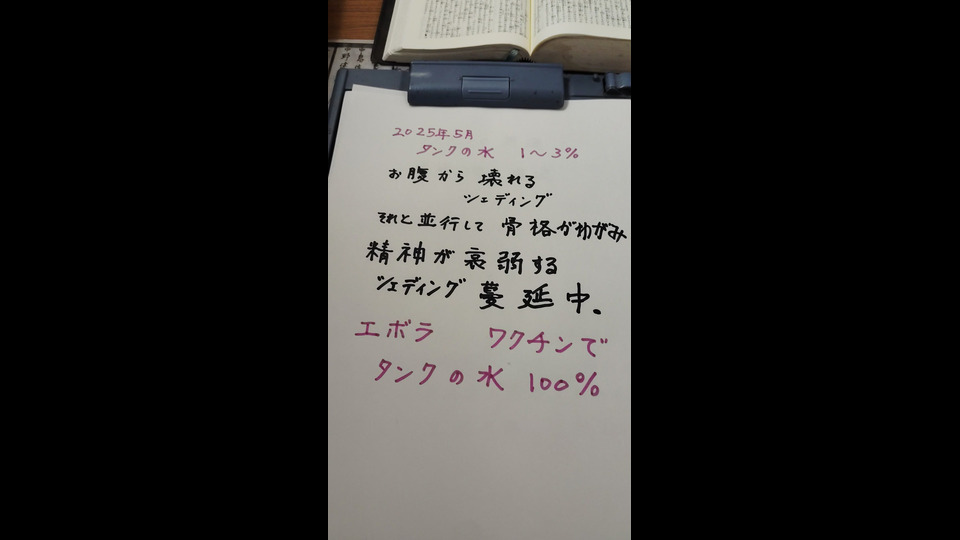 2025年5月
タンクの水 1～3%
お腹から 壊れる
シェディング
それと並行して 骨格がゆがみ
精神が衰弱する
シェディング 蔓延中。
エボラ ワクチンで
タンクの水 100%